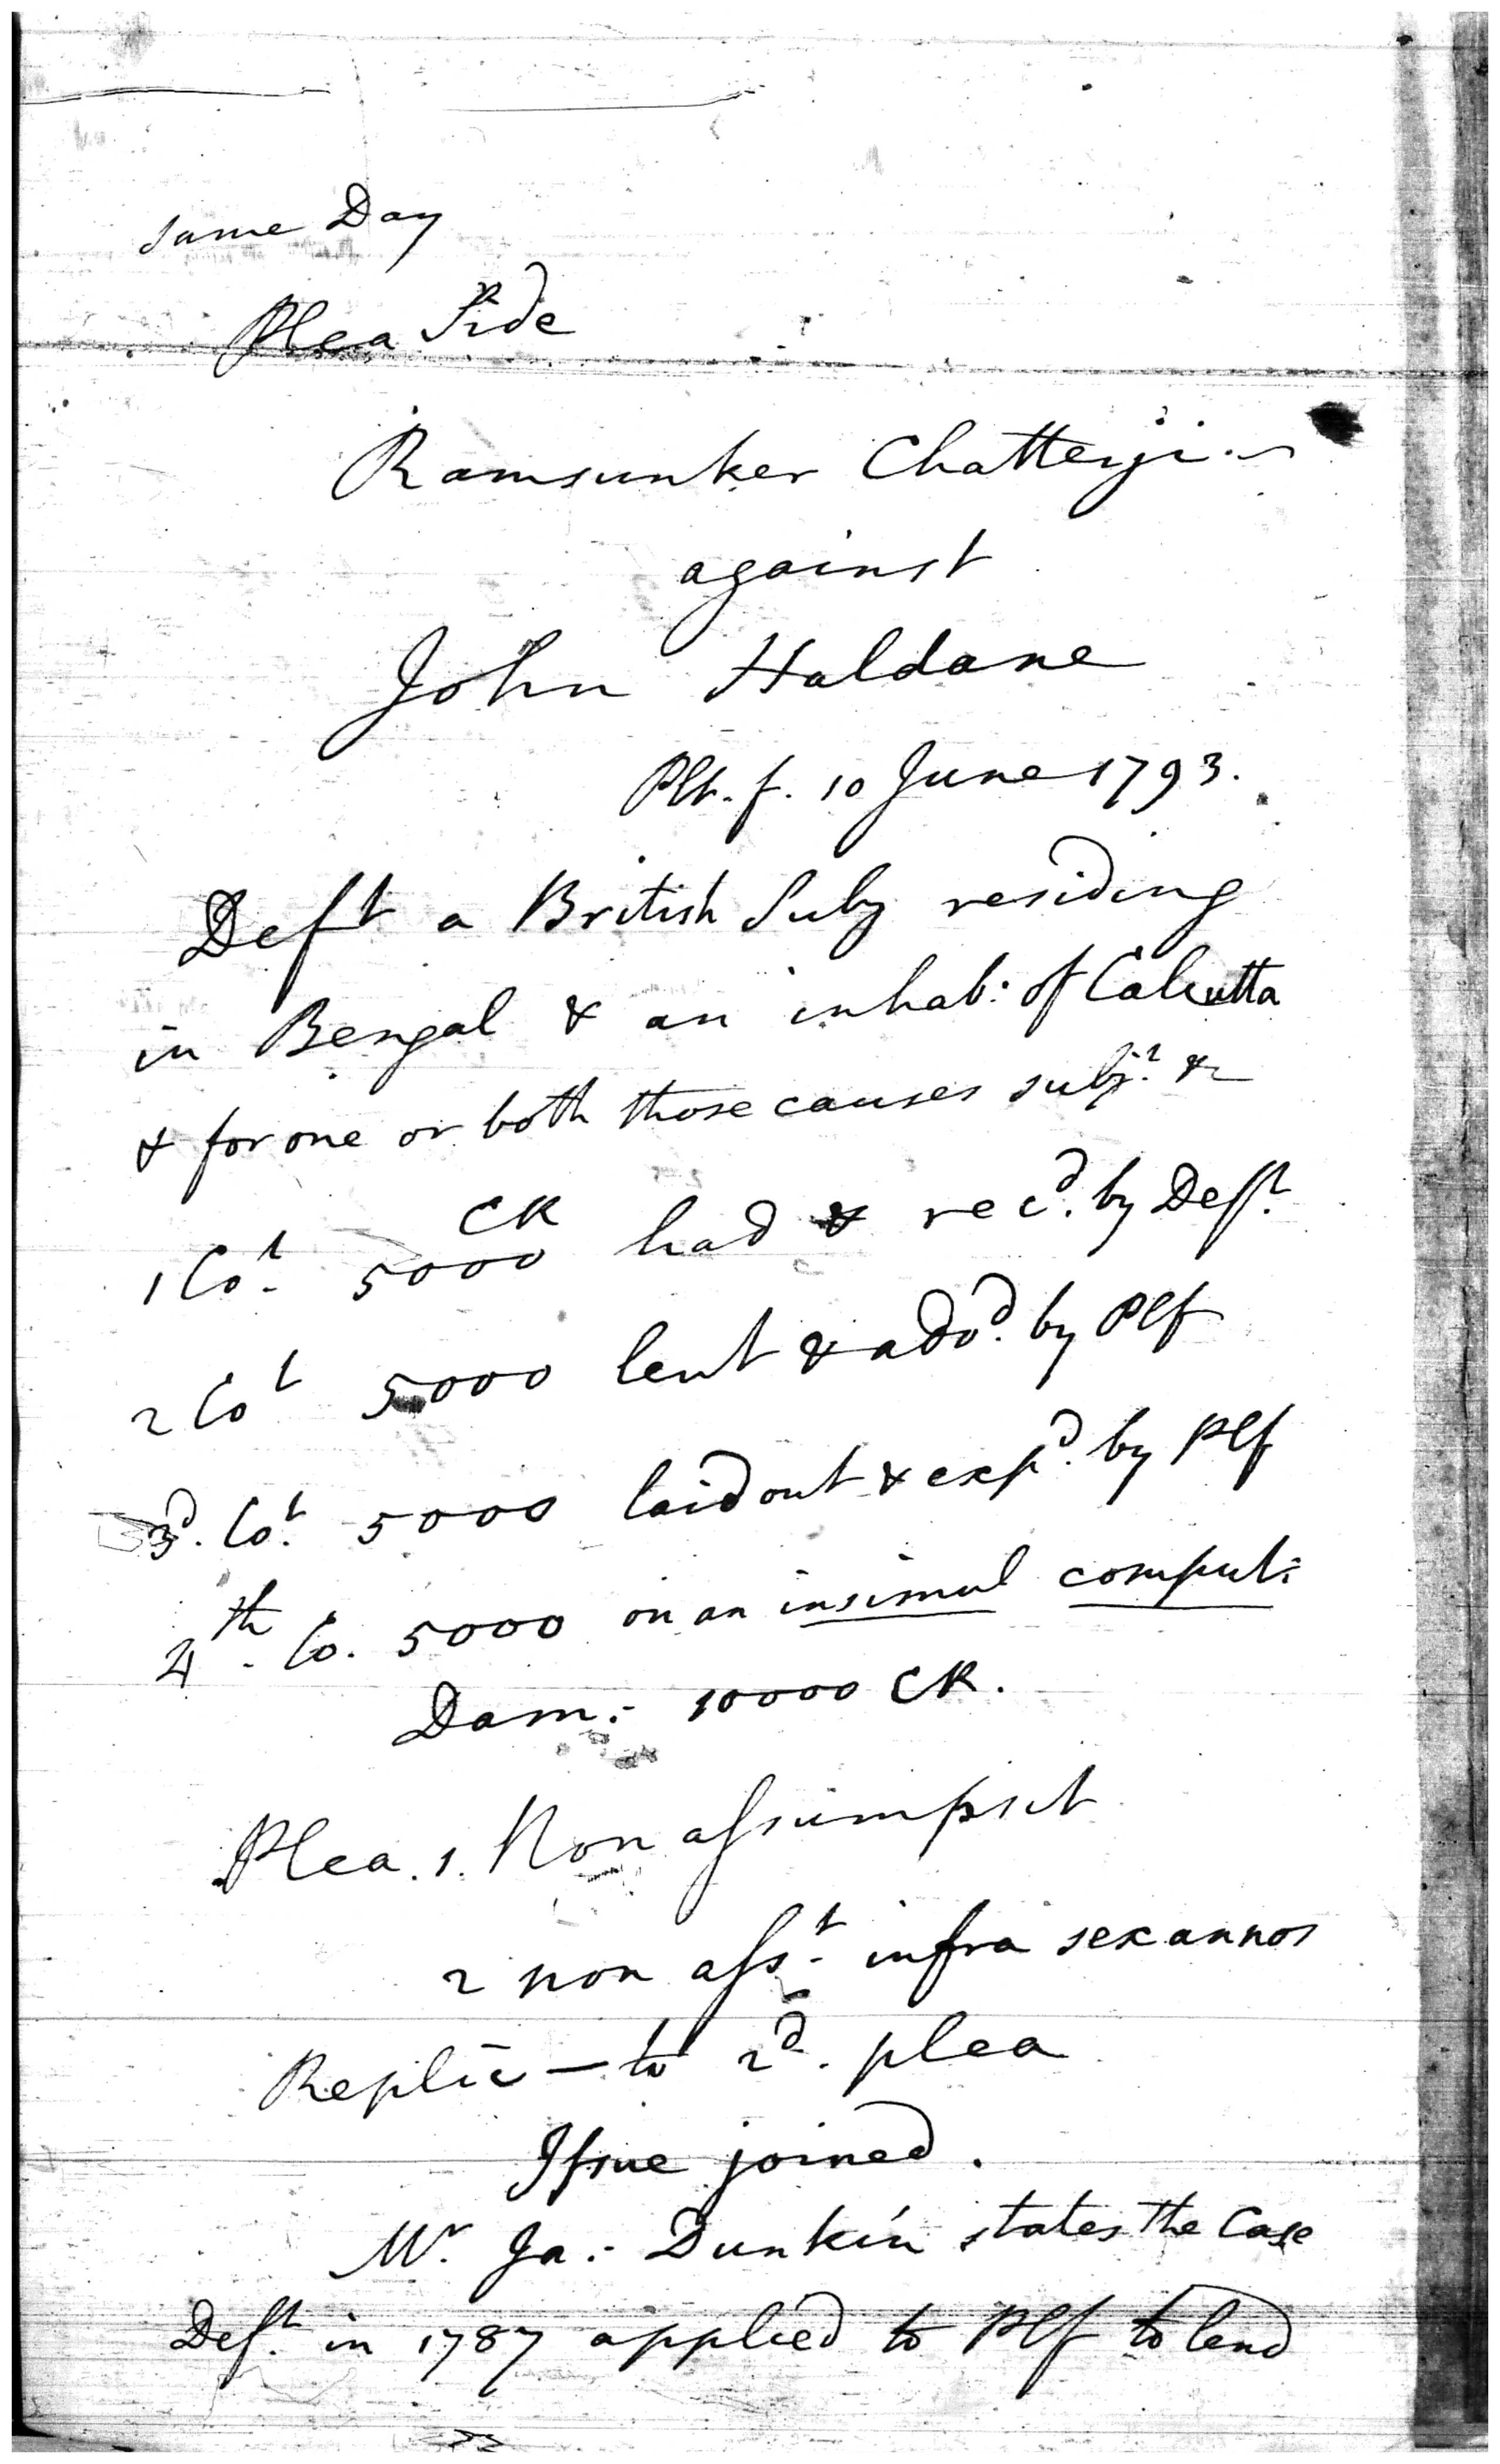 same Day
Plea Side
Ramsunker Chatterji
against
John Haldane
Plt. f. 10 June 1793.
Deft a British Subj residing
in Bengal & an inhab: of Calcutta
& for one or both those causes subjt. &c
1 Cot. 5000 CR had & recd. by Deft.
2 Cot 5000 lent & advd. by Plf
3d. Cot. 5000 laid out & expd. by Plf
4th. Co. 5000 on an insimul comput:
Dam:- 10000 CR.
Plea. 1. Non assumpsit
2 non asst. infra sex annos
Replic — to 2d. plea
Issue joined.
Mr. Ja:- Dunkin states the Case
Deft. in 1787 applied to Plf to lend